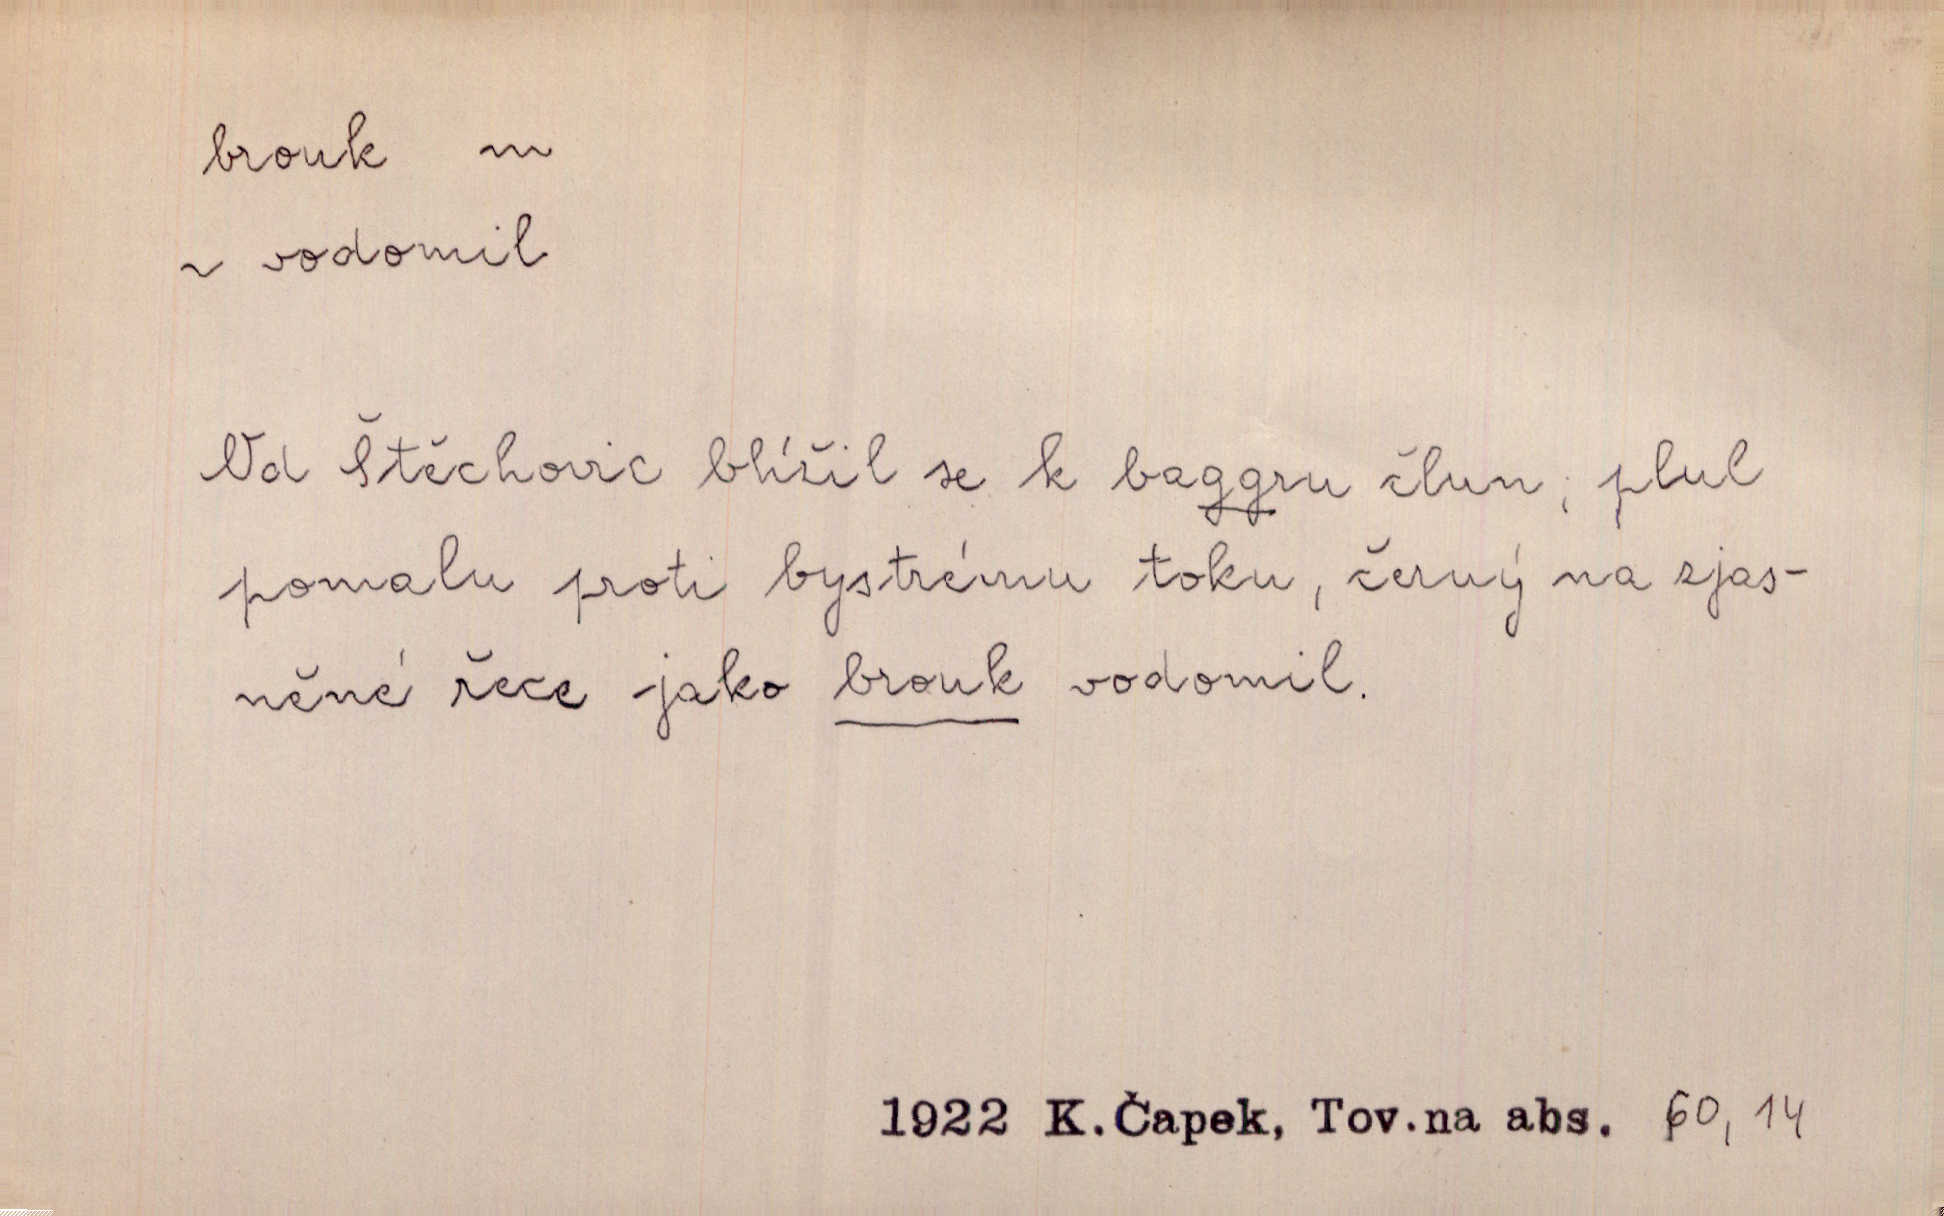 brouk m
~ vodomil
Od Štěchovic blížil se k baggru člun; plul
pomalu proti bystrému toku, černý na zjas-
něné řece jako brouk vodomil.
1922 K.Čapek, Tov.na abs. 60, 14